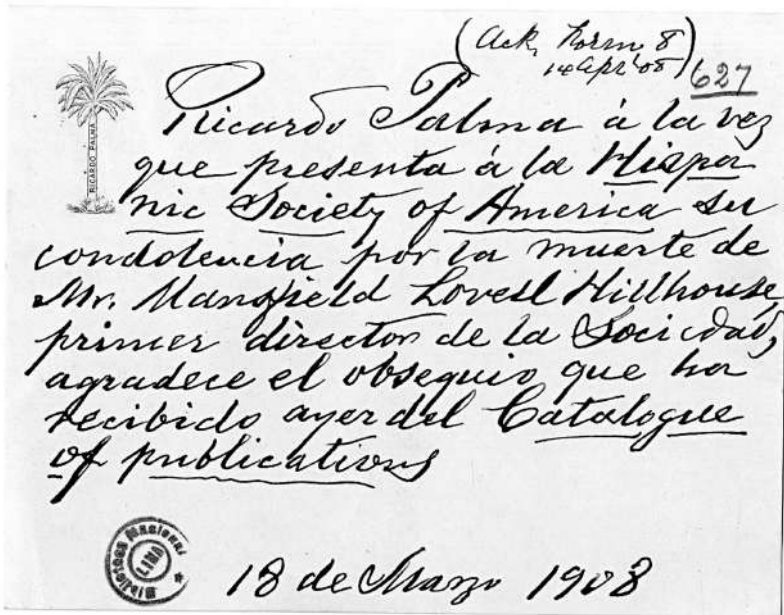 (Ack. Form 8
14 Apr '08)
627
RICARDO PALMA
Ricardo Palma á la vez
que presenta á la Hispa
nic Society of America su
condolencia por la muerte de
Mr. Mansfield Lovell Hillhouse,
primer director de la Sociedad,
agradece el obsequio que ha
recibido ayer del Catalogue
of publications
Biblioteca Nacional
LIMA
18 de Marzo 1908